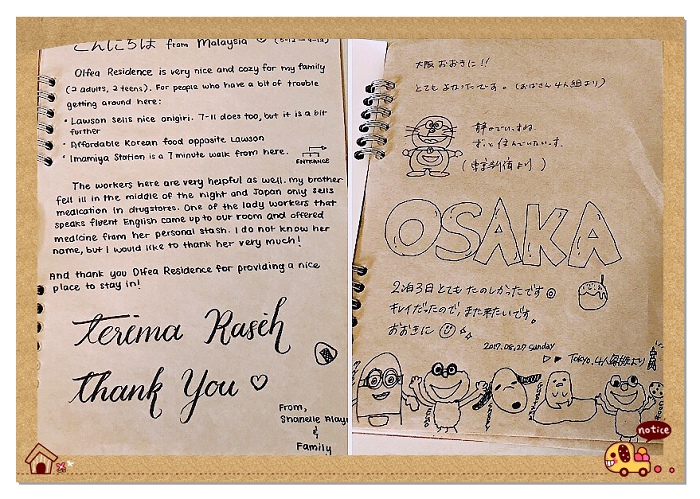 こんにちは from Malaysia
Olfea Residence is very nice and cozy for my family
(2 adults, 2 teens). For people who have a bit of trouble
getting around here:
• Lawson sells nice onigiri. 7-11 does too, but it is a bit
further
• Affordable Korean food opposite Lawson
• Imamiya Station is a 7 minute walk from here.
ENTRANCE
The workers here are very helpful as well. my brother
fell ill in the middle of the night and Japan only sells
medication in drugstores. One of the lady workers that
speaks fluent English came up to our room and offered
medicine from her personal stash. I do not know her
name, but I would like to thank her very much!
And thank you Olfea Residence for providing a nice
place to stay in!
Terima Kasih
Thank You ♡
From,
Shanelle
&
Family
大阪 おおきに!!
とても よかったです。(おばさん4人組より)
静かでいいですね。
ずっと 住んでいたいです。
OSAKA
2泊3日 とても たのしかったです
キレイだったので、また来たいです。
おおきに
2017.08.27 sunday
Tokyo. 4人
notice